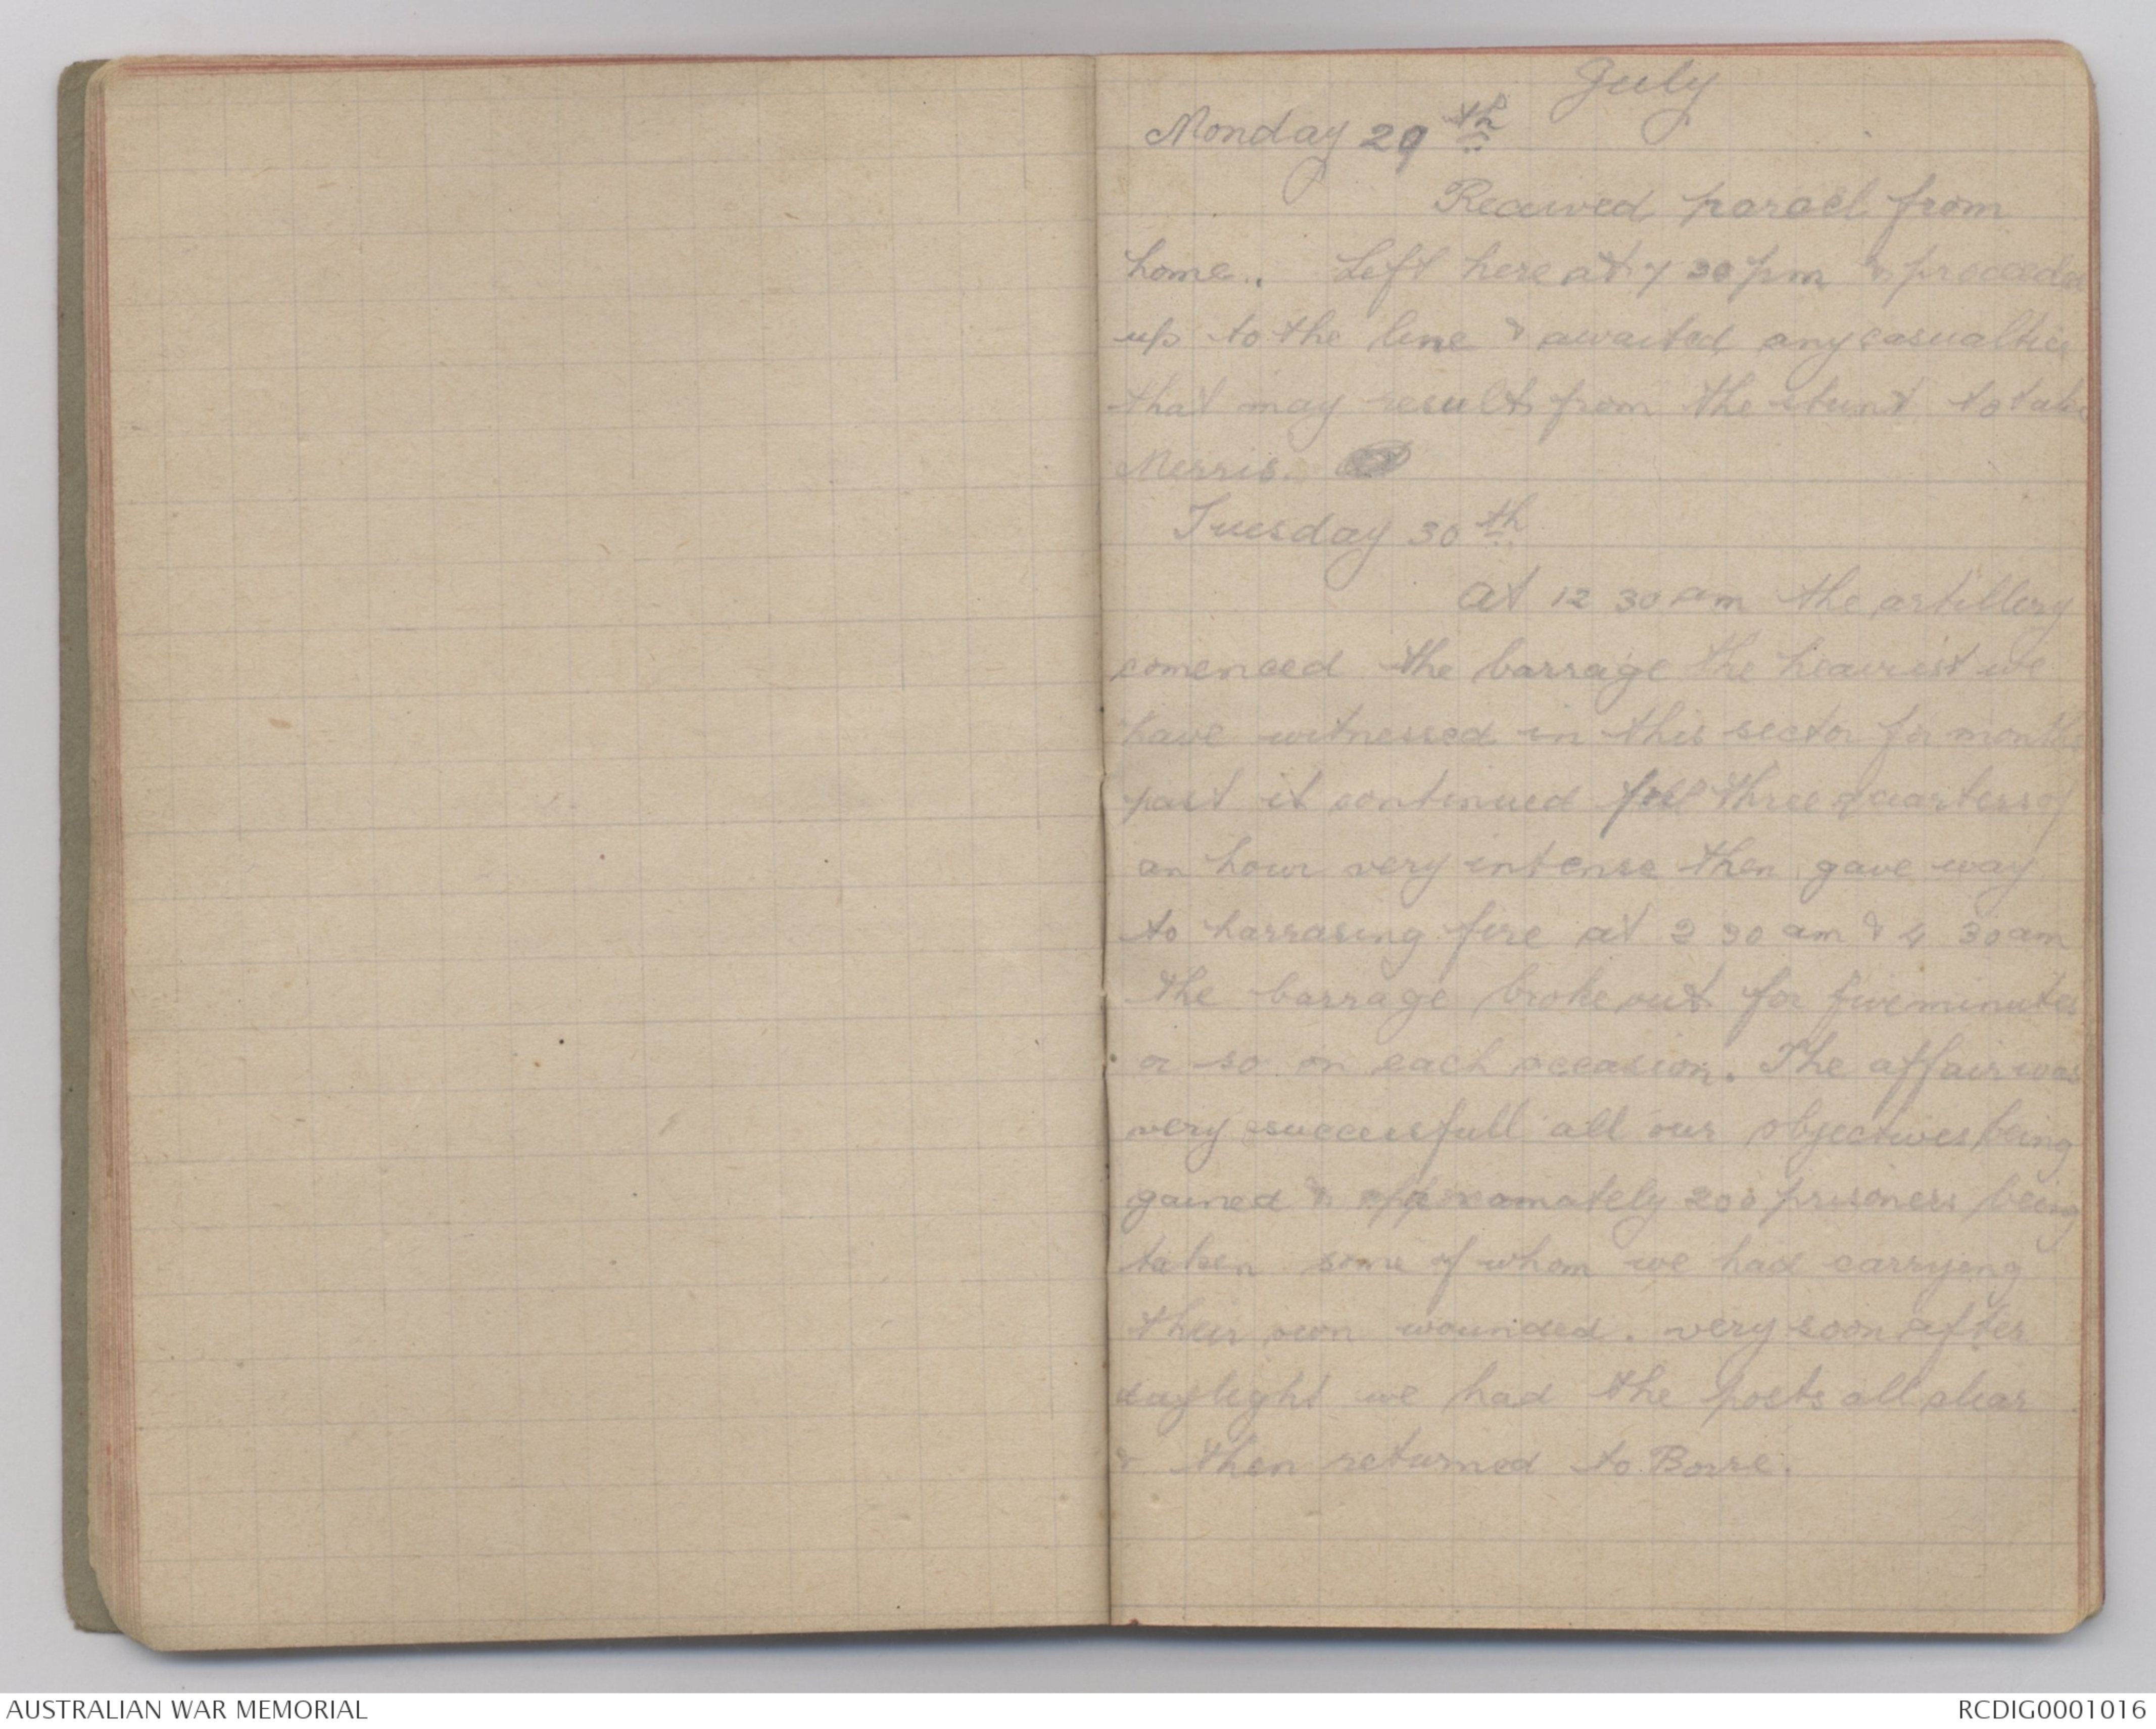 July
Monday 29th
Received parcel from
home.. Left here at 7 30 pm & proceeded
up to the line & awaited any casualties
that may result from the stunt to take
Merris.
Tuesday 30th
At 12 30 am the artillery
comenced the barrage the heaviest we
have witnessed in this sector for months
past it continued for three quarters of
an hour very intense then gave way
to harrasing fire at 2 30 am & 4 30 am
the barrage broke out for five minutes
or so on each occasion. The affair was
very successfull all our objectives being
gained & approxamately 200 prisoners being
taken some of whom we had carrying
their own wounded. very soon after
daylight we had the posts all clear
& then returned to Borre.
AUSTRALIAN WAR MEMORIAL
RCDIG0001016